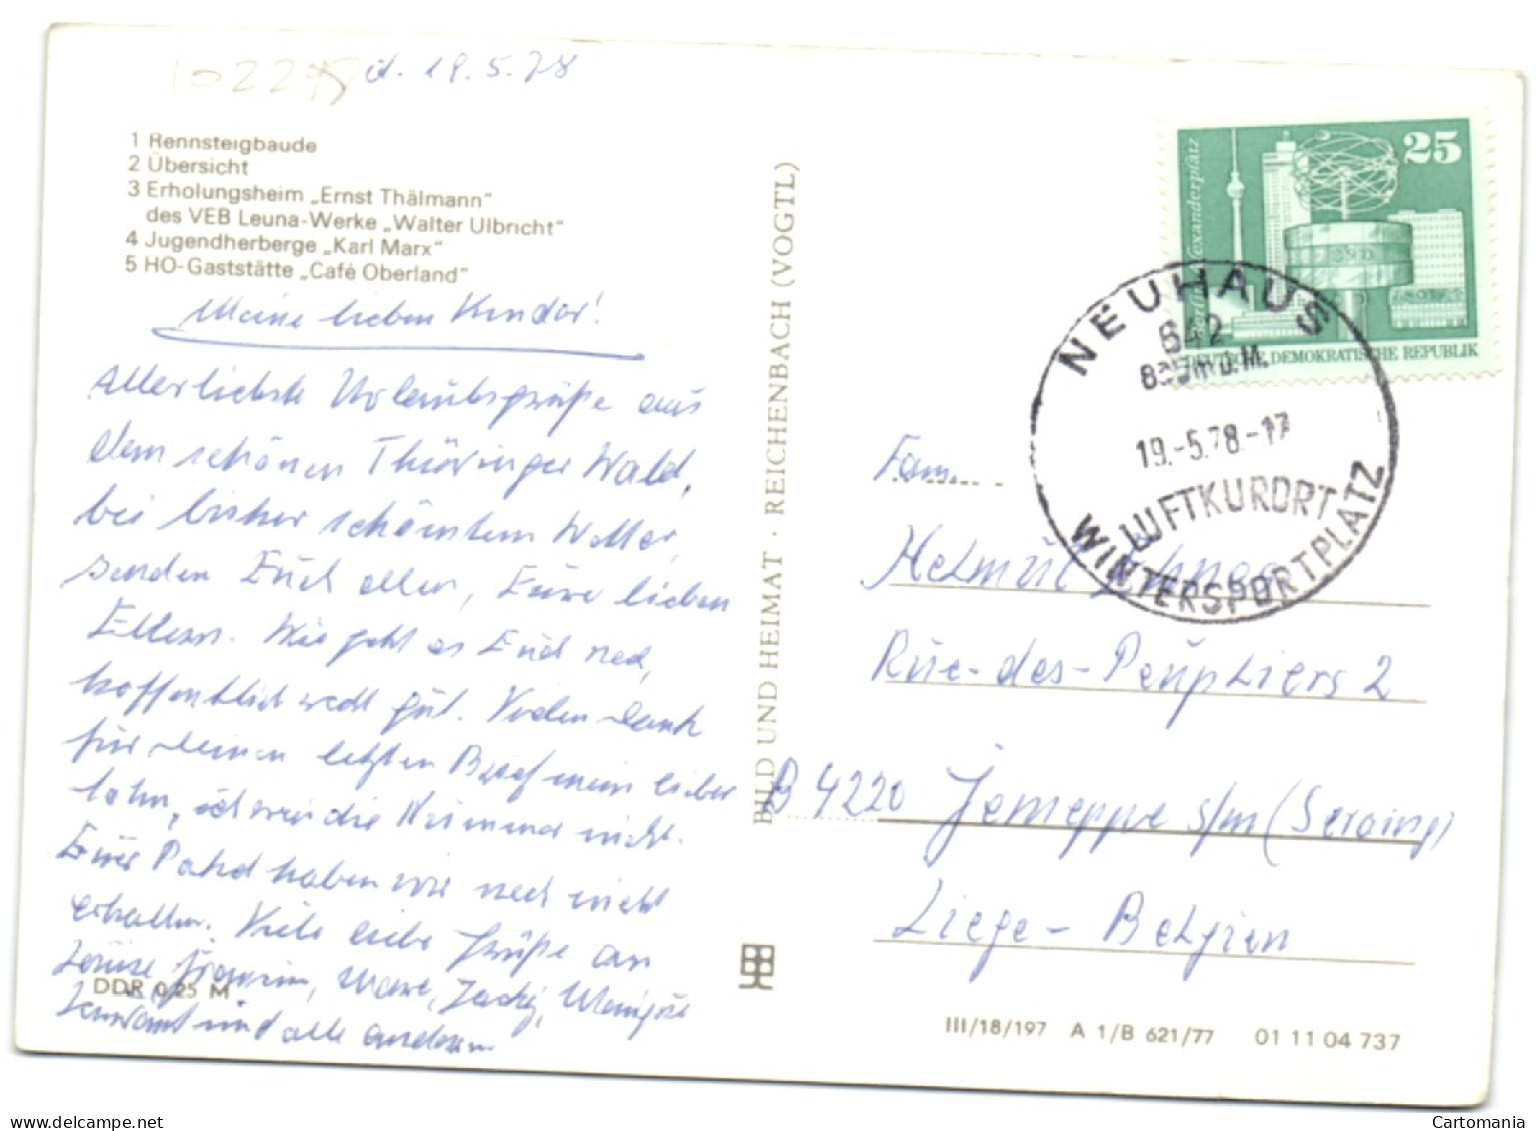 d. 19.5.78
1 Rennsteigbaude
2 Übersicht
3 Erholungsheim „Ernst Thälmann“
des VEB Leuna-Werke „Walter Ulbricht“
4 Jugendherberge „Karl Marx“
5 HO-Gaststätte „Café Oberland“
Meine lieben Kinder!
Allerliebste Urlaubsgrüße aus
dem schönen Thüringer Wald,
bei bisher schönstem Wetter,
senden Euch allen, Eure lieben
Eltern. Wie geht es Euch
hoffentlich recht gut. Vielen Dank
für Deinen letzten Brief mein lieber
die Nummer nicht.
haben wir noch nicht
erhalten. Viele liebe Grüße an
und alle anderen
DDR 0,25 M
BILD UND HEIMAT · REICHENBACH (VOGTL)
25
Berlin, Alexanderplatz
DEUTSCHE DEMOKRATISCHE REPUBLIK
NEUHAUS
642
835m ü. M.
19.-5.78.-17
LUFTKURORT
WINTERSPORTPLATZ
Fam.
Helmut
Rue-des-Peupliers 2
B 4220 Jemeppe s/m (Seraing)
Liege - Belgien
III/18/197 A 1/B 621/77 01 11 04 737
delcampe.net
Cartomania